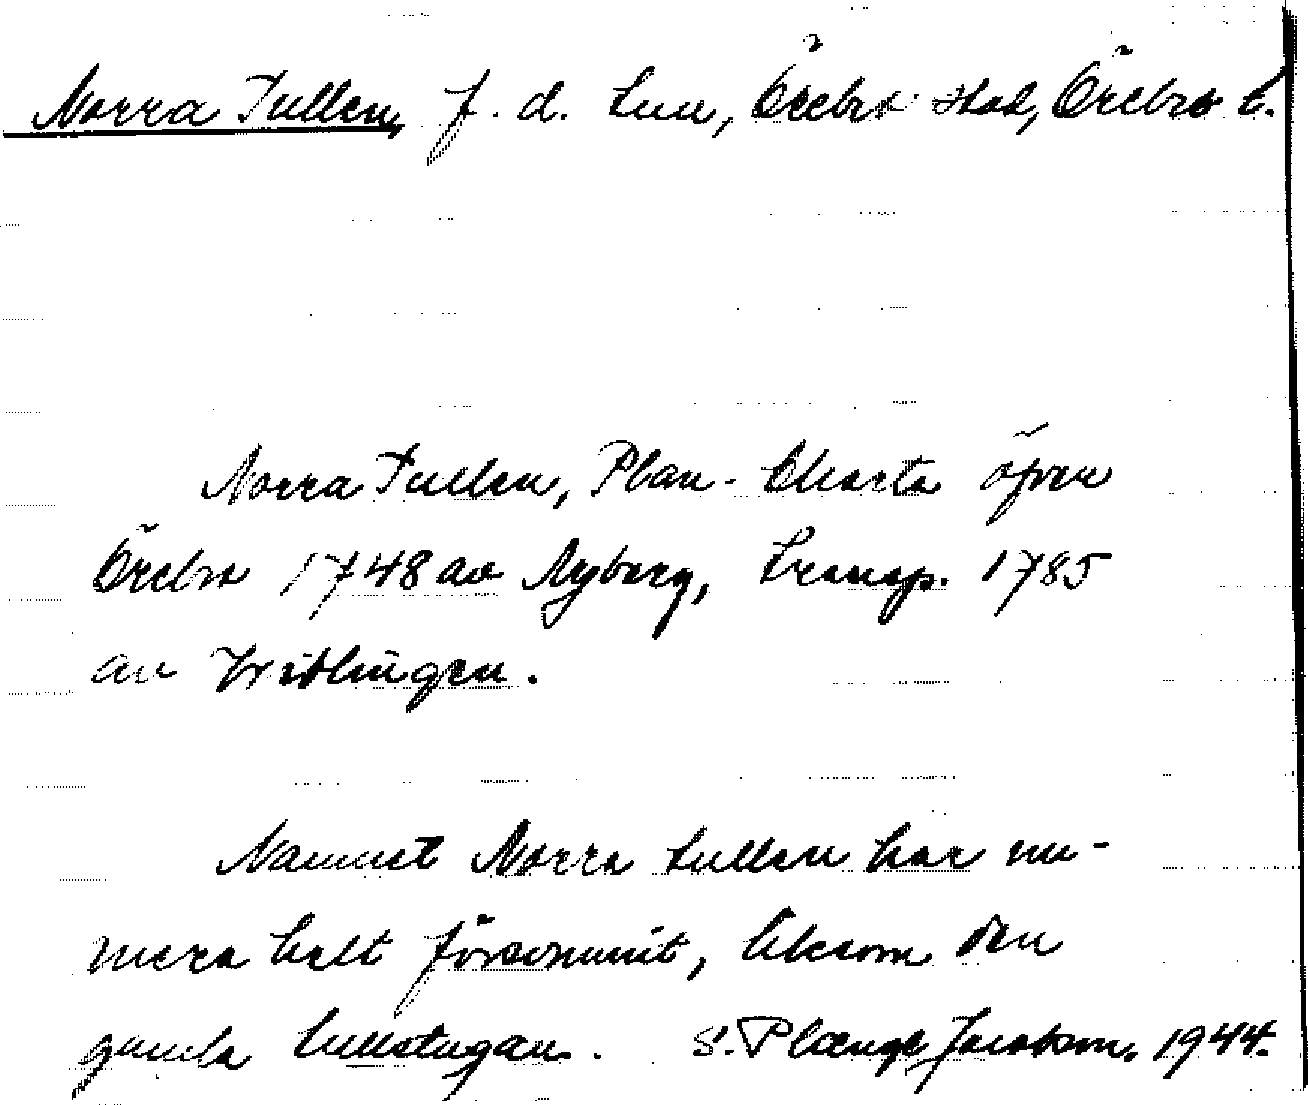 Norra Tullen, f. d. tull, Örebro stad, Örebro l.
Norra Tullen, Plan-Charta öfver
Örebro 1748 av Nyberg, transp. 1785
av
Namnet Norra tullen har nu-
mera helt försvunnit, liksom den
gamla tullstugan. S. Plænge Jacobson. 1944.